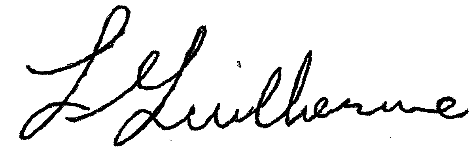 L Guilherme